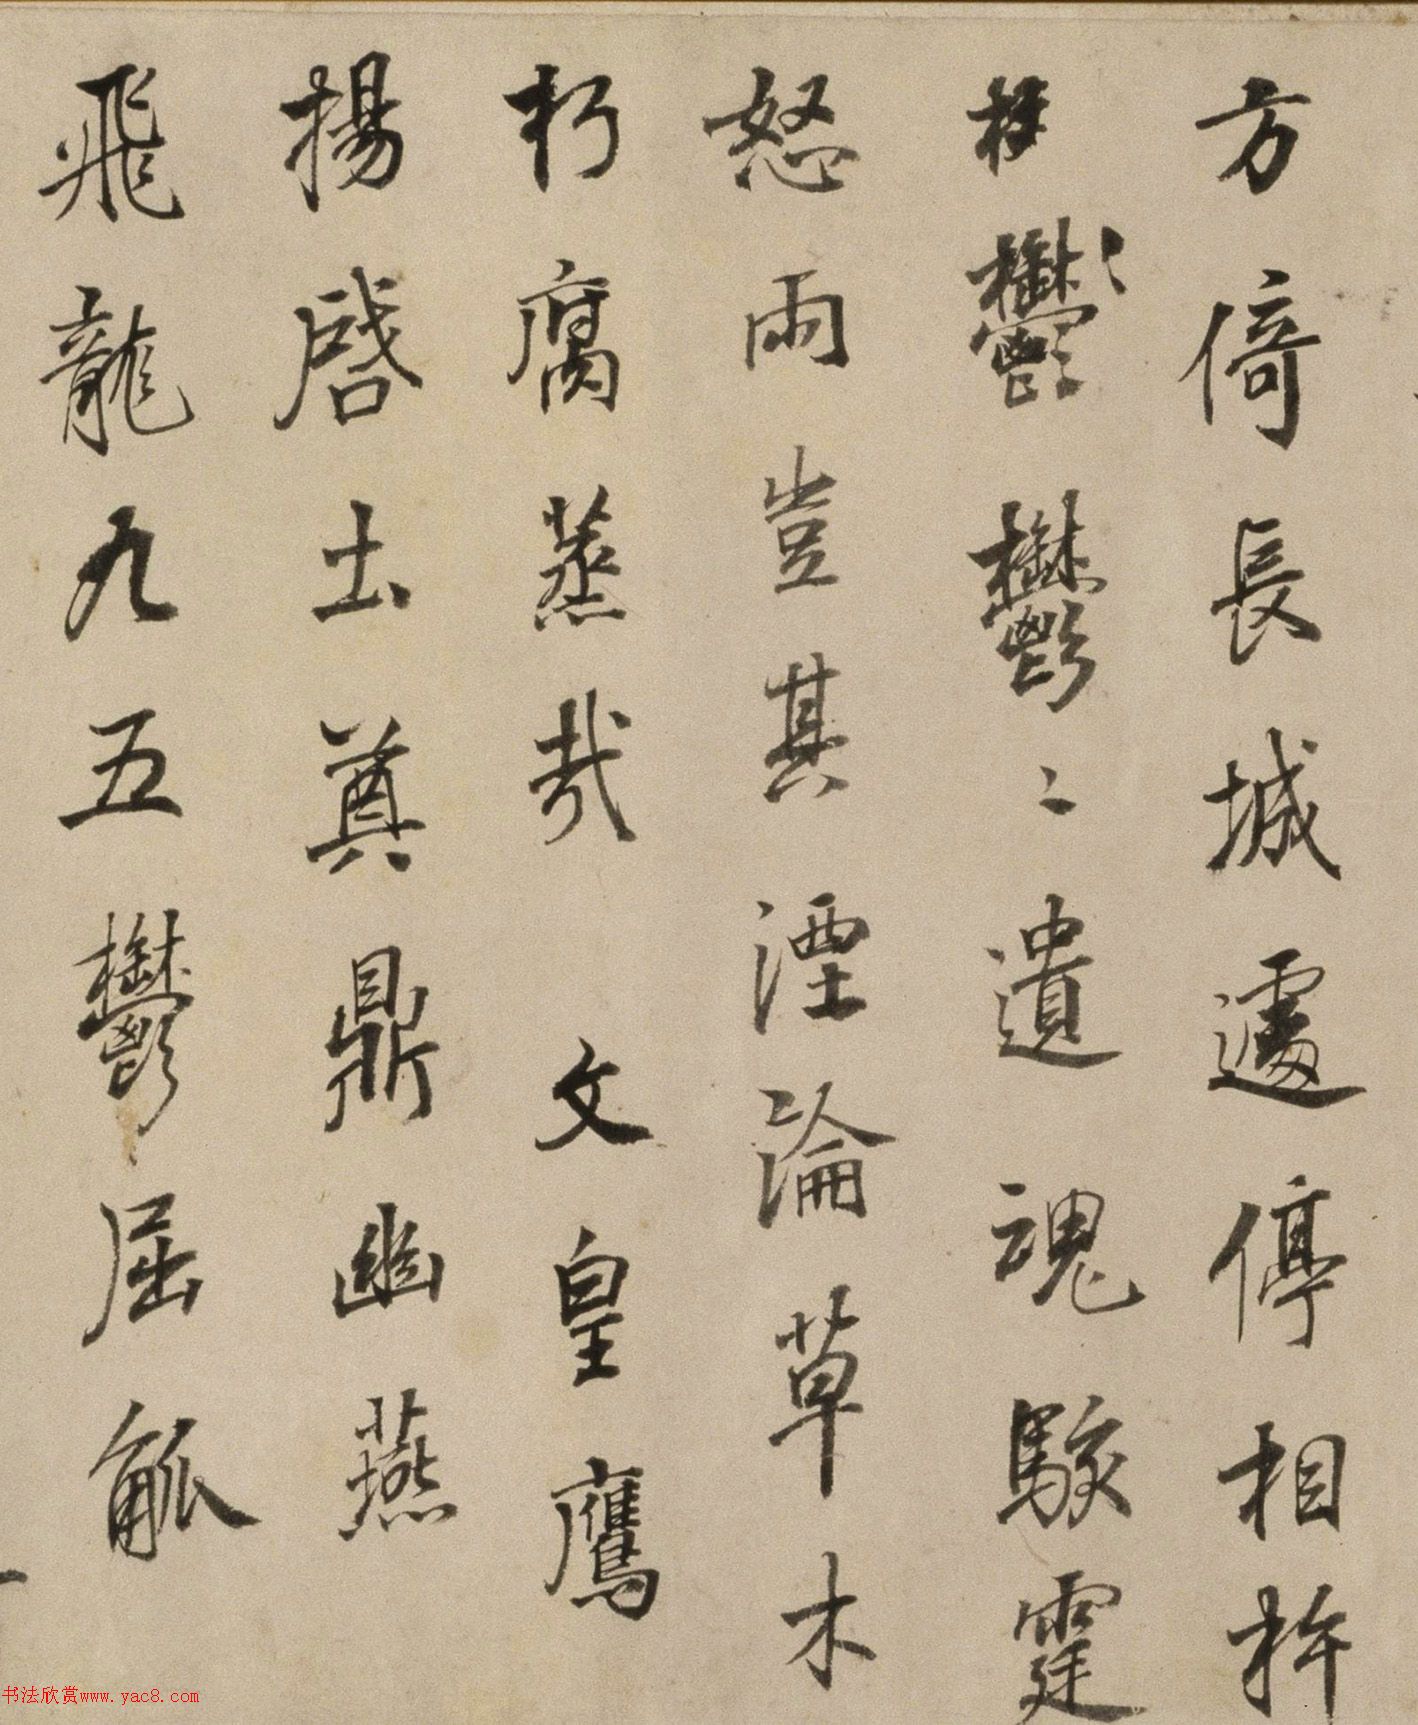 方倚長城遽停相杵
鬱鬱〻遺魂駭霆
怒雨豈其湮淪草木
朽腐蒸哉 文皇鷹
揚啓土奠鼎幽燕
飛龍九五鬱屈觚
书法欣赏www.yac8.com